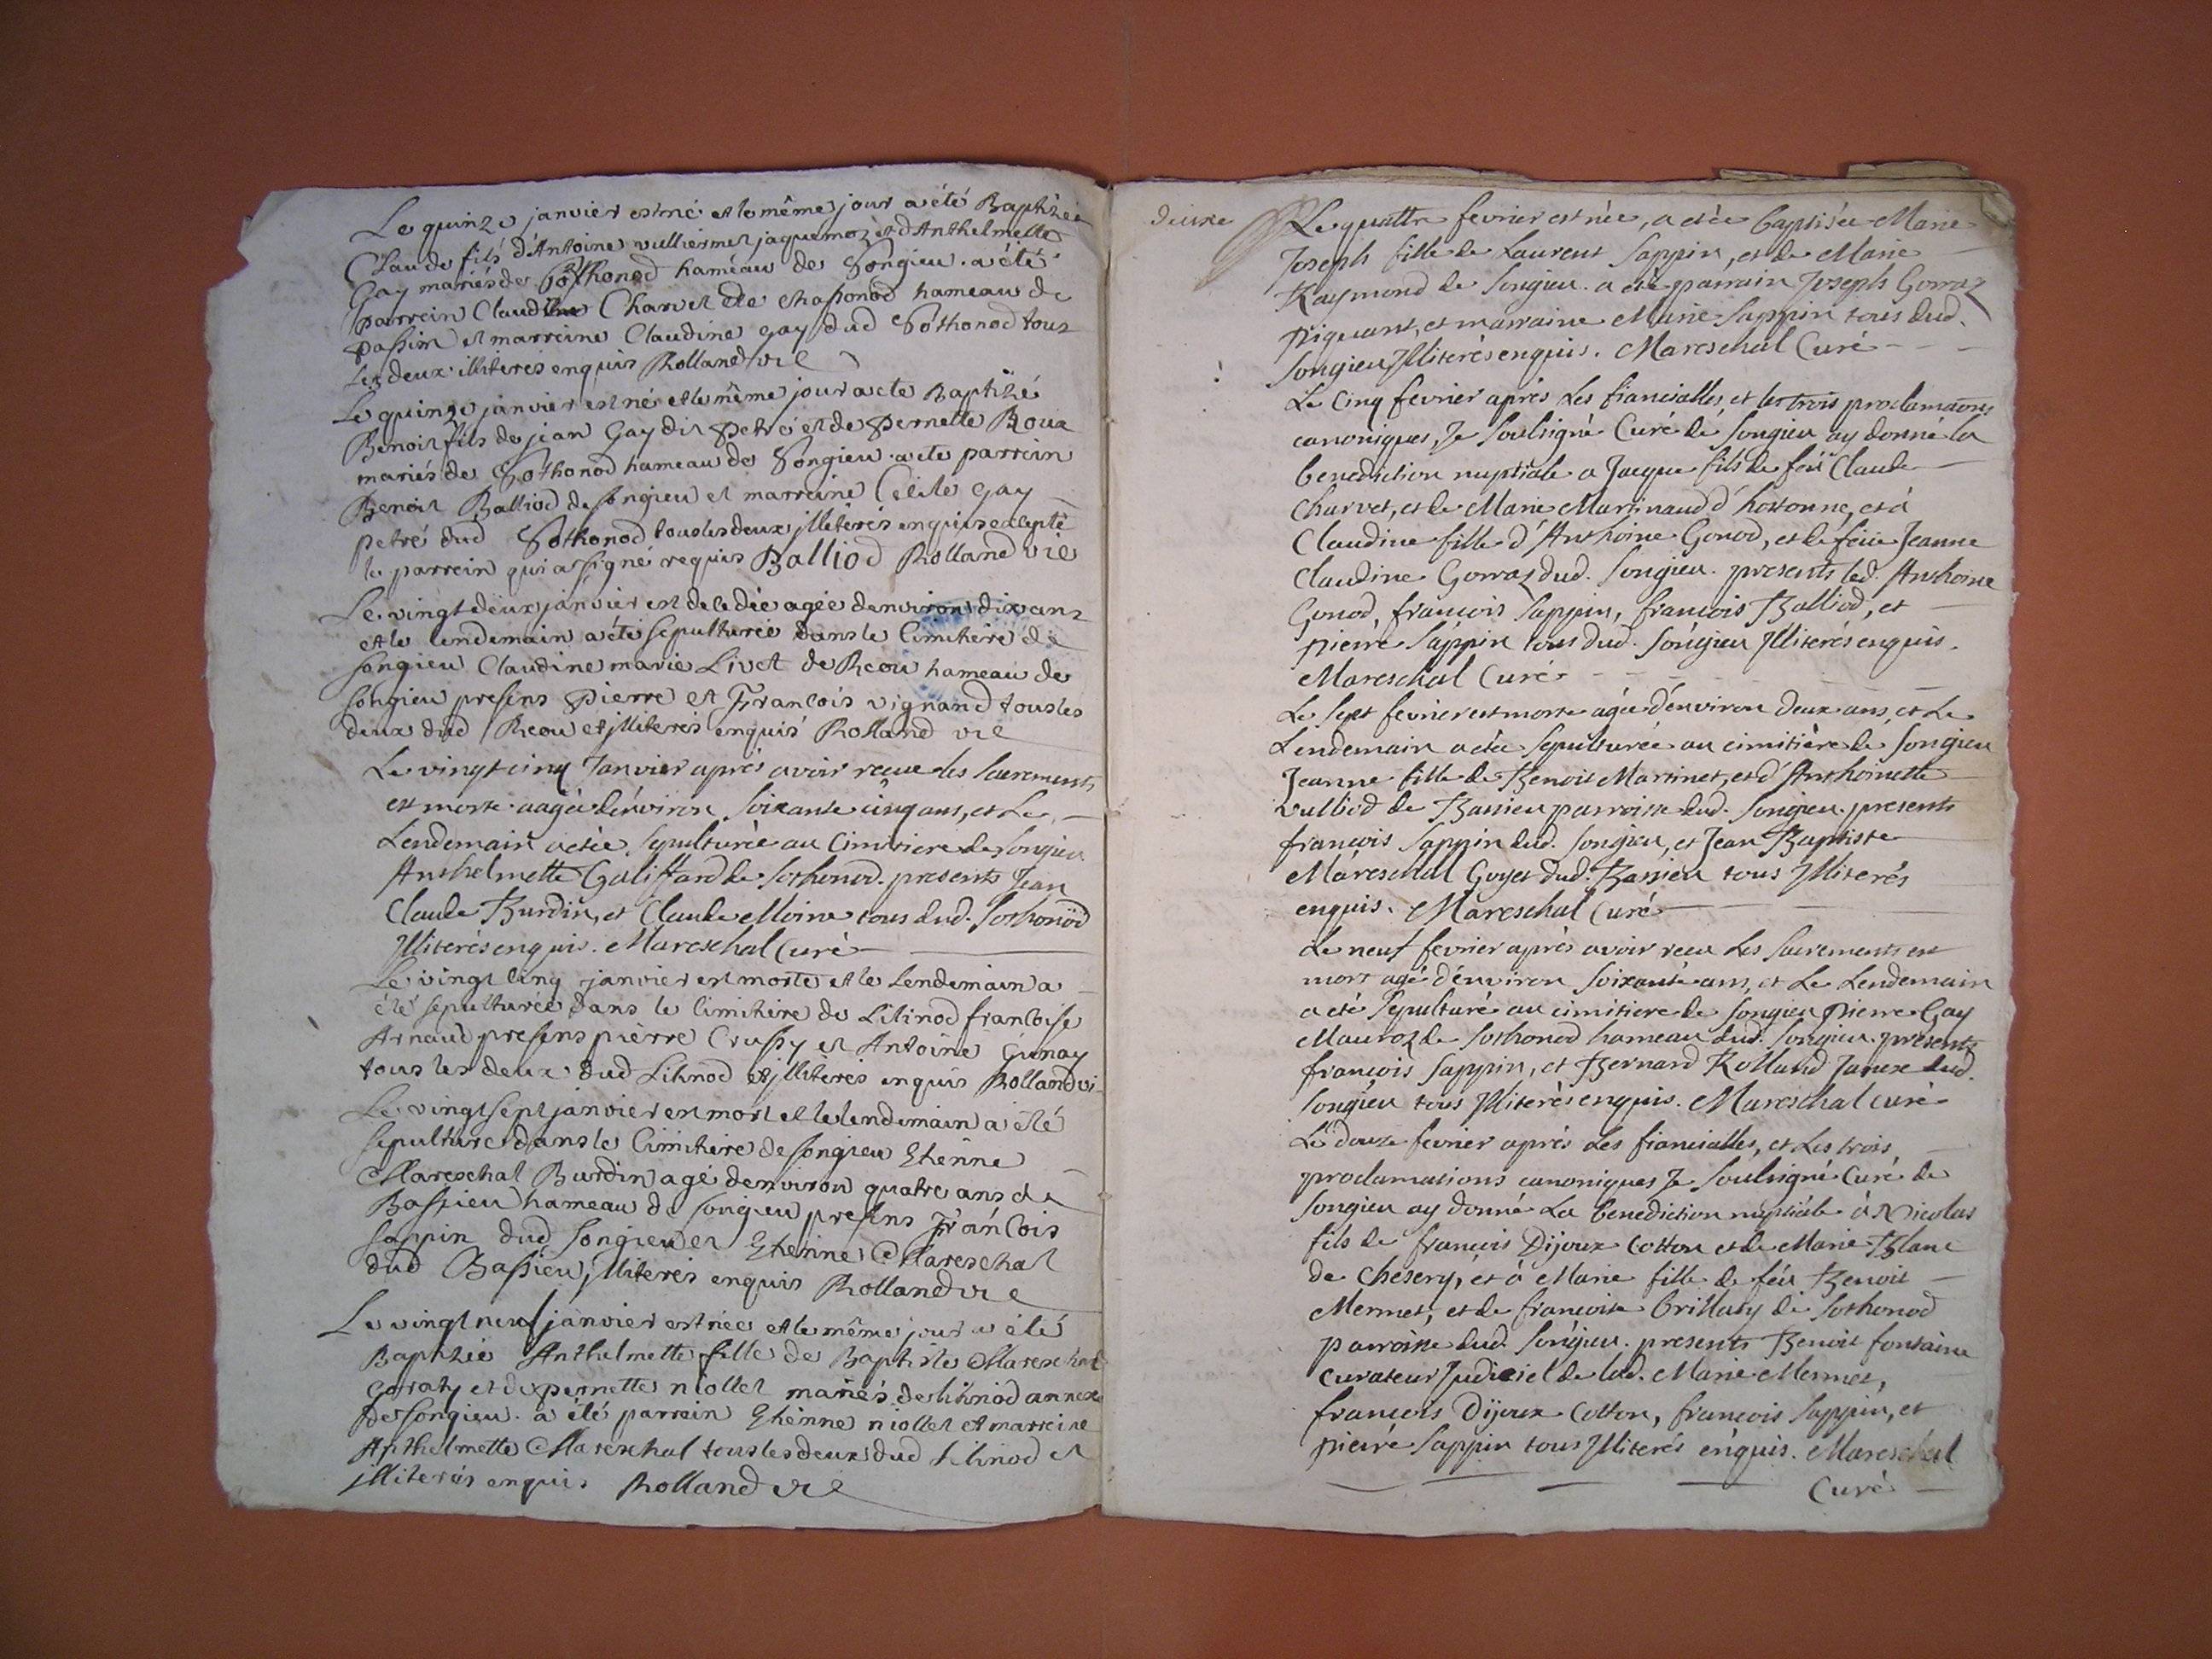 Le quinze janvier est né et le même jour a été Baptizée
Claude fils d'Antoine vulliermet jaquemoz et d'Anthelmette
Gay mariés de Sothonod haméau de Songieu. a été
parrein Claude Charvet de chassonod hameau de
passin et marreine Claudine gay dud Sothonod tous
les deux illiterés enquis Rolland vic
Le quinze janvier est né et le même jour a ete Baptizé
Benoit fils de jean Gay dit petré et de pernette Roux
mariés de Sothonod hameau de Songieu a ete parrein
Benoit Balliod de songieu et marreine Cécile gay
petré dud Sothonod tous les deux illiterés enquis excepté
le parrein qui a signé requis Balliod Rolland vic
Le vingt deux janvier est decedée agée denviron dix ans
et le lendemain a été sepulturée dans le Cimitiere de
songieu Claudine marie Livet de Reou hameau de
songieu presens pierre et Francois vignand tous les
deux dud Reou et illiteres enquis Rolland vic
Le vingt cinq Janvier après avoir reçue les sacrements
est morte aagée d'environ soixante cinq ans, et Le
Lendemain a étée sepulturée au Cimitiere de Songieu
Anthelmette Galiffard de sothonod. presents Jean
Claude Burdin, et Claude Moine tous dud. sothonod
Illiterés enquis. Mareschal Curé
Le vingt cinq janvier est morte et le Lendemain a
été sepulturée dans le Cimitiere de Lilinod francoise
Arnaud presens pierre Crussy et Antoine Gunay
tous les deux dud Lilinod et illiterés enquis Rolland vi
Le vingt sept janvier est mort et le lendemain a été
sepulture dans le Cimitiere de songieu Etienne
Mareschal Burdin agé denviron quatre ans de
Bassieu hameau de songieu presens Francois
sappin dud songieu et Etienne Mareschal
dud Bassieu illiterés enquis Rolland vic
Le vingt neuf janvier est née et le même jour a été
Baptizée Anthelmette fille de Baptiste Mareschal
goraty et de pernette niollet mariés de lilinod annexe
de songieu. a été parrein Etienne niollet et marreine
Anthelmette Mareschal tous les deux dud Lilinod et
illiterés enquis Rolland vic
deuxe
Le quattre fevrier est née, a étée baptisée Marie
Joseph fille de Laurent Sappin, et de Marie
Raymond de Songieu. a été parrain Joseph Gorraz
piquant, et marraine Marie Sappin tous dud.
Songieu Illiterés enquis. Mareschal Curé
Le Cinq fevrier après Les fiancialles, et les trois proclamaons
canoniques, Je Soussigné Curé de Songieu ay donné la
benediction nuptiale a Jacque fils de feu Claude
Charvet, et de Marie Martinaud d'hostonne, et à
Claudine fille d'Anthoine Gonod, et de féüe Jeanne
Claudine Gorraz dud. Songieu. presents led. Anthoine
Gonod, francois Sappin, francois Balliod, et
pierre Sappin tous dud. Songieu Illiterés enquis.
Mareschal Curé
Le Sept fevrier est morte agée d'environ deux ans, et Le
Lendemain a étée Sepulturée au cimitière de Songieu
Jeanne fille de Benoit Martinet, et d'Anthoinette
vulliod de Bassieu parroisse dud. Songieu. presents
francois Sappin dud. Songieu, et Jean Baptiste
Mareschal Goyet dud. Bassieu tous Illiterés
enquis. Mareschal Curé
Le neuf fevrier après avoir reçu Les Sacrements est
mort agé d'environ Soixante ans, et Le Lendemain
a été Sepulturé au cimitiere de Songieu Pierre Gay
Mauroz de Sothonod hameau dud. Songieu. presents
francois Sappin, et Bernard Rolland Janex dud.
Songieu tous Illiterés enquis. Mareschal curé
Le douze fevrier après Les fiancialles, et Les trois
proclamations canoniques Je Soussigné Curé de
Songieu ay donné La benediction nuptiale à Nicolas
fils de francois Dijoux Cotton et de Marie Blanc
de Chesery, et à Marie fille de féu Benoit
Mermet, et de francoise brillaty de Sothonod
parroisse dud. Songieu. presents Benoit fontaine
curateur Judiciel de lad. Marie Mermet,
francois Dijoux Cotton, francois Sappin, et
pierre Sappin tous Illiterés enquis. Mareschal
Curé